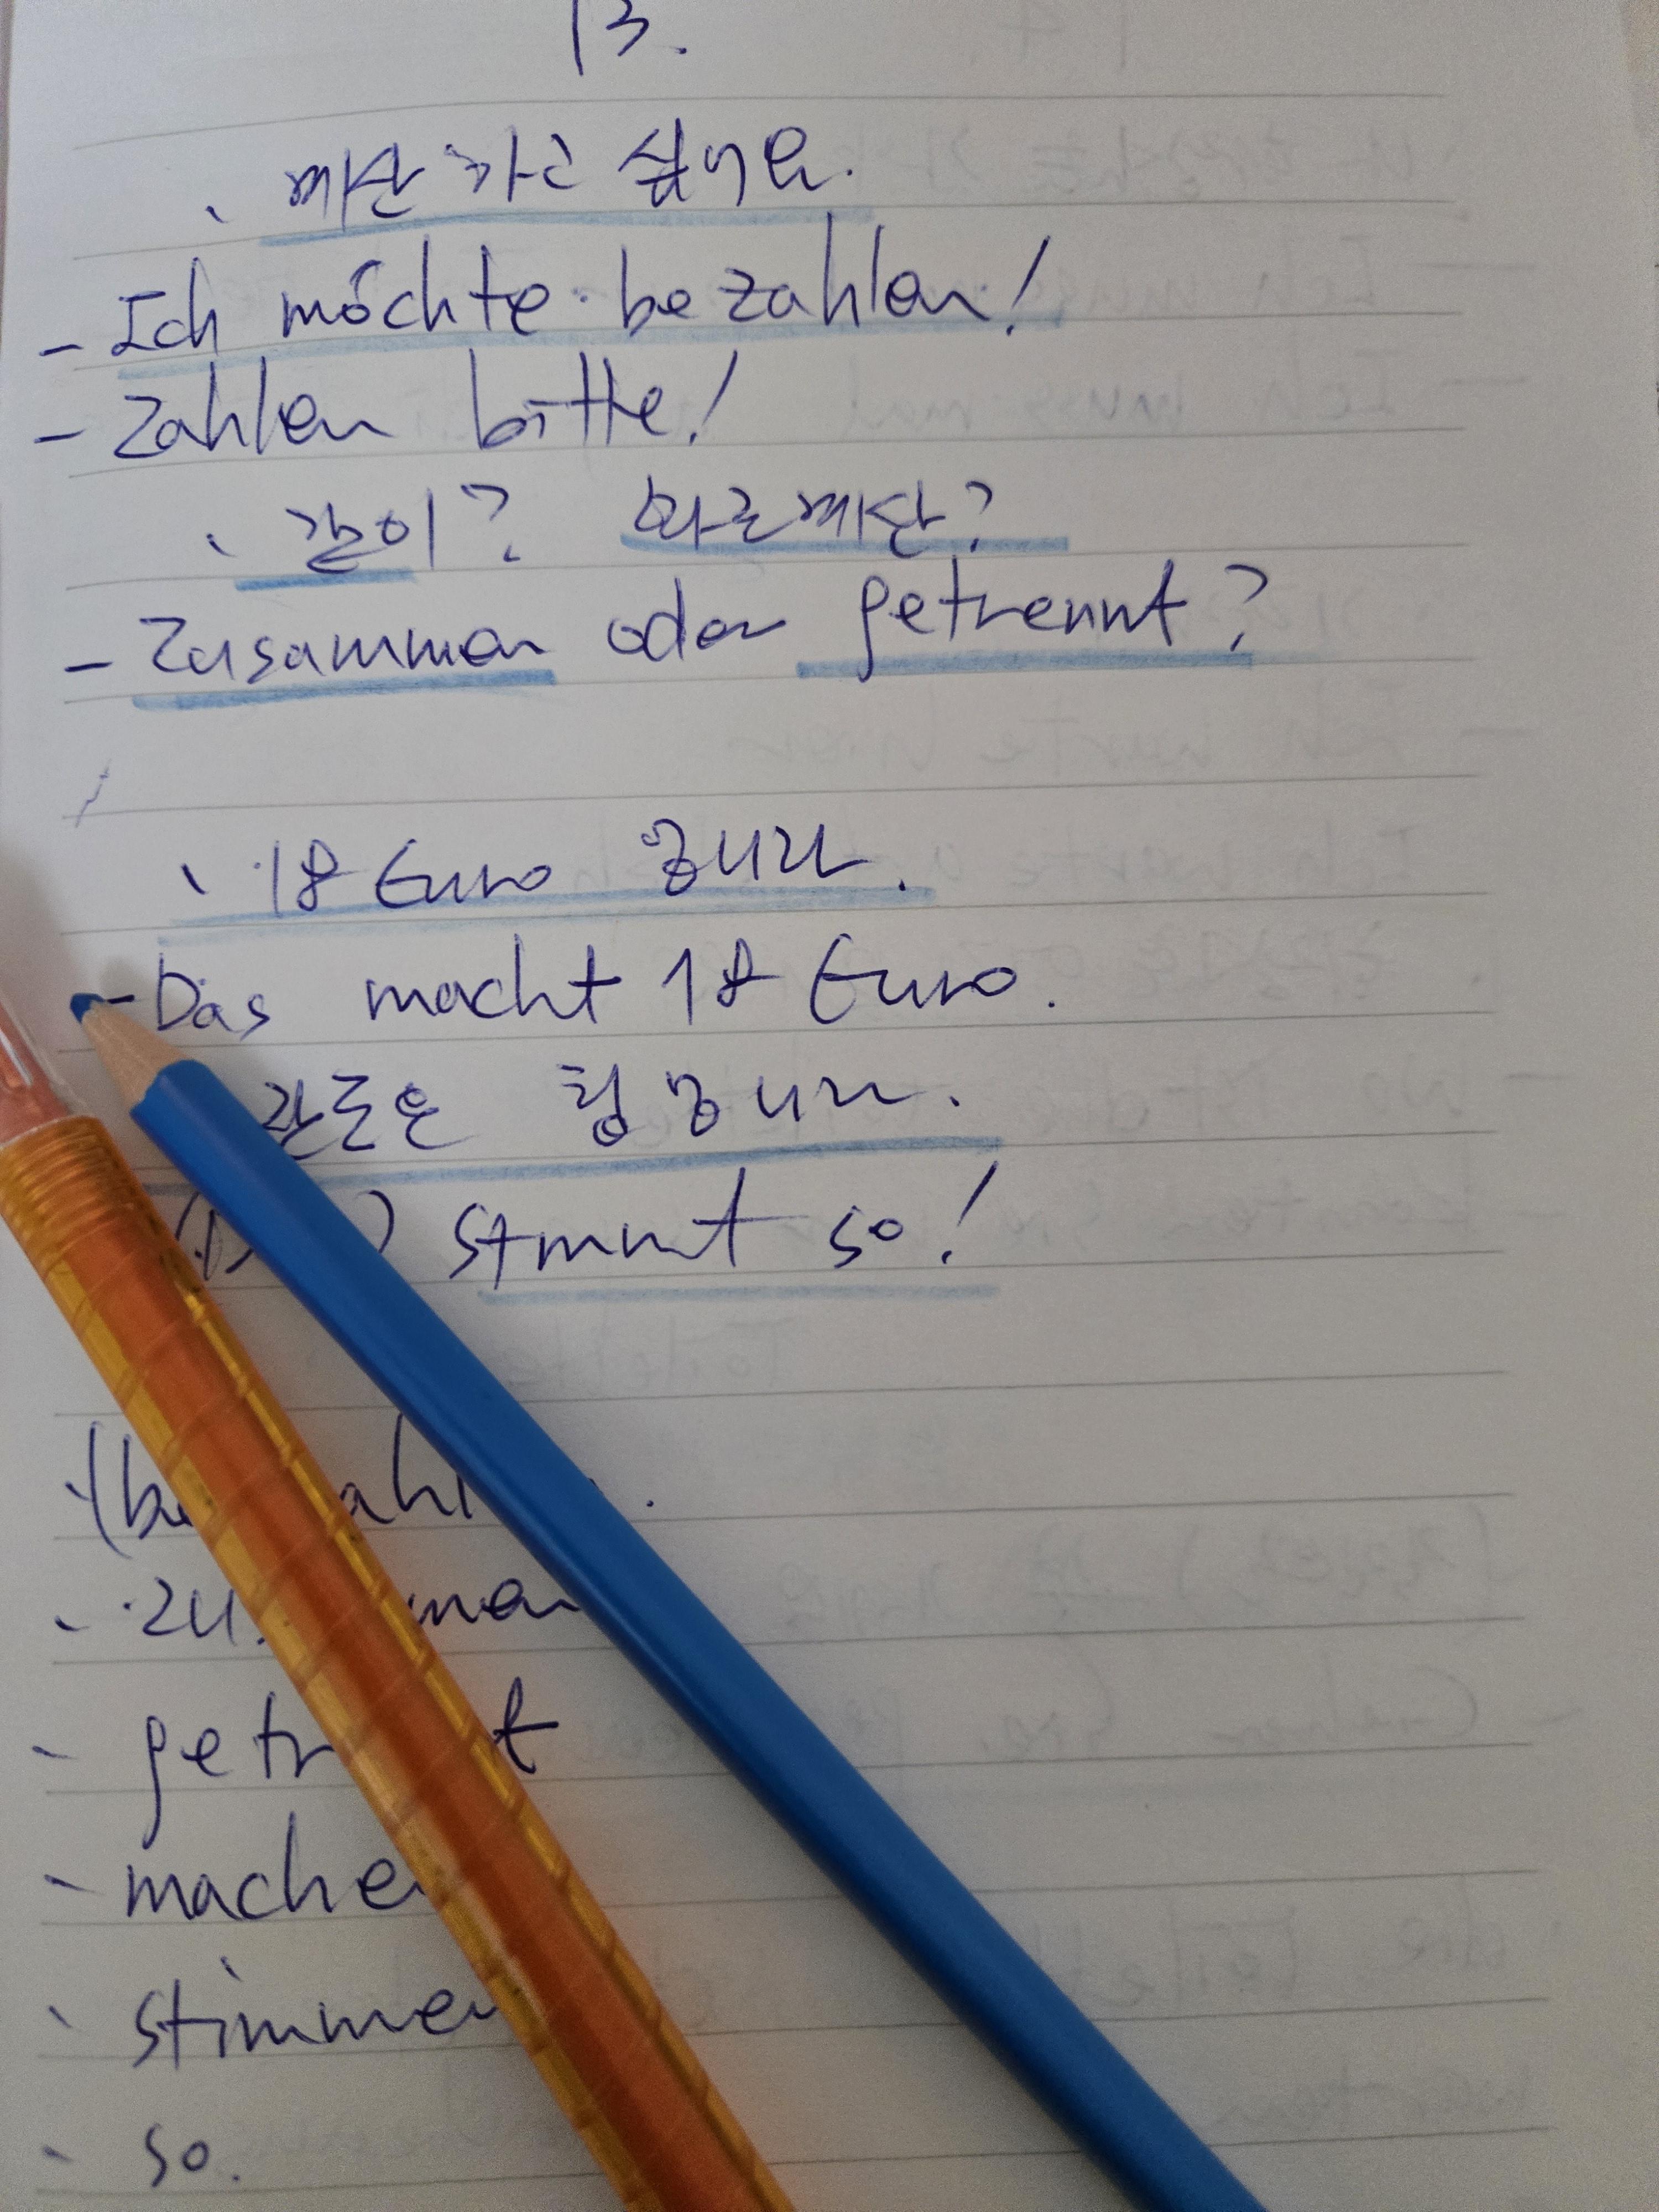 13.
계산하고 싶어요.
- Ich möchte bezahlen!
- Zahlen bitte!
같이? 따로계산?
- Zusammen oder getrennt?
18 Euro 입니다.
- Das macht 18 Euro.
잔돈은 팁 입니다.
stimmt so!
machen
stimmen
so.